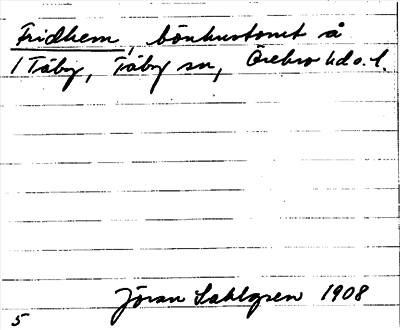 Fridhem, bönhustomt å
1 Täby, Täby sn, Örebro hd o. l.
Jöran Sahlgren 1908
5